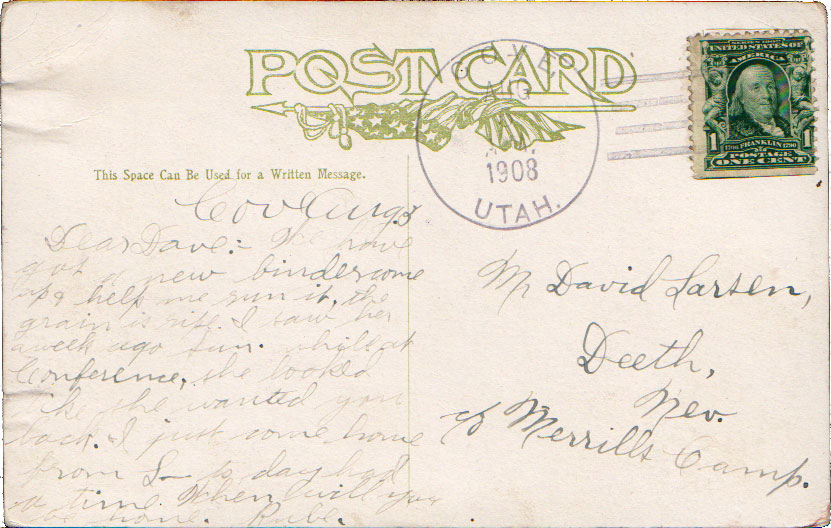 POST CARD
This Space Can Be Used for a Written Message.
COVE
AUG
1908
UTAH.
SERIES 1902
UNITED STATES OF
AMERICA
1 1706 FRANKLIN 1790 1
POSTAGE
ONE CENT
Cove Aug. 3
Dear Dave:- We have
got a new binder come
up & help me run it, the
grain is ripe. I saw her
a week ago Sun. while at
Conference, she looked
like she wanted you
back. I just come home
from L— to day had
a time. When will you
be home. Rube.
Mr David Larsen,
Deeth,
Nev.
c/o Merrills Camp.